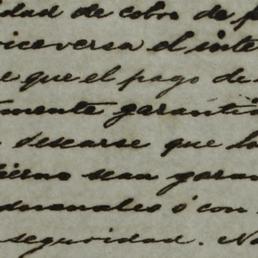 idad de cobro de p
viceversa el inte
e que el pago de
mente garanti
desearse que la
bierno sean garan
duanales ó con
seguridad. No